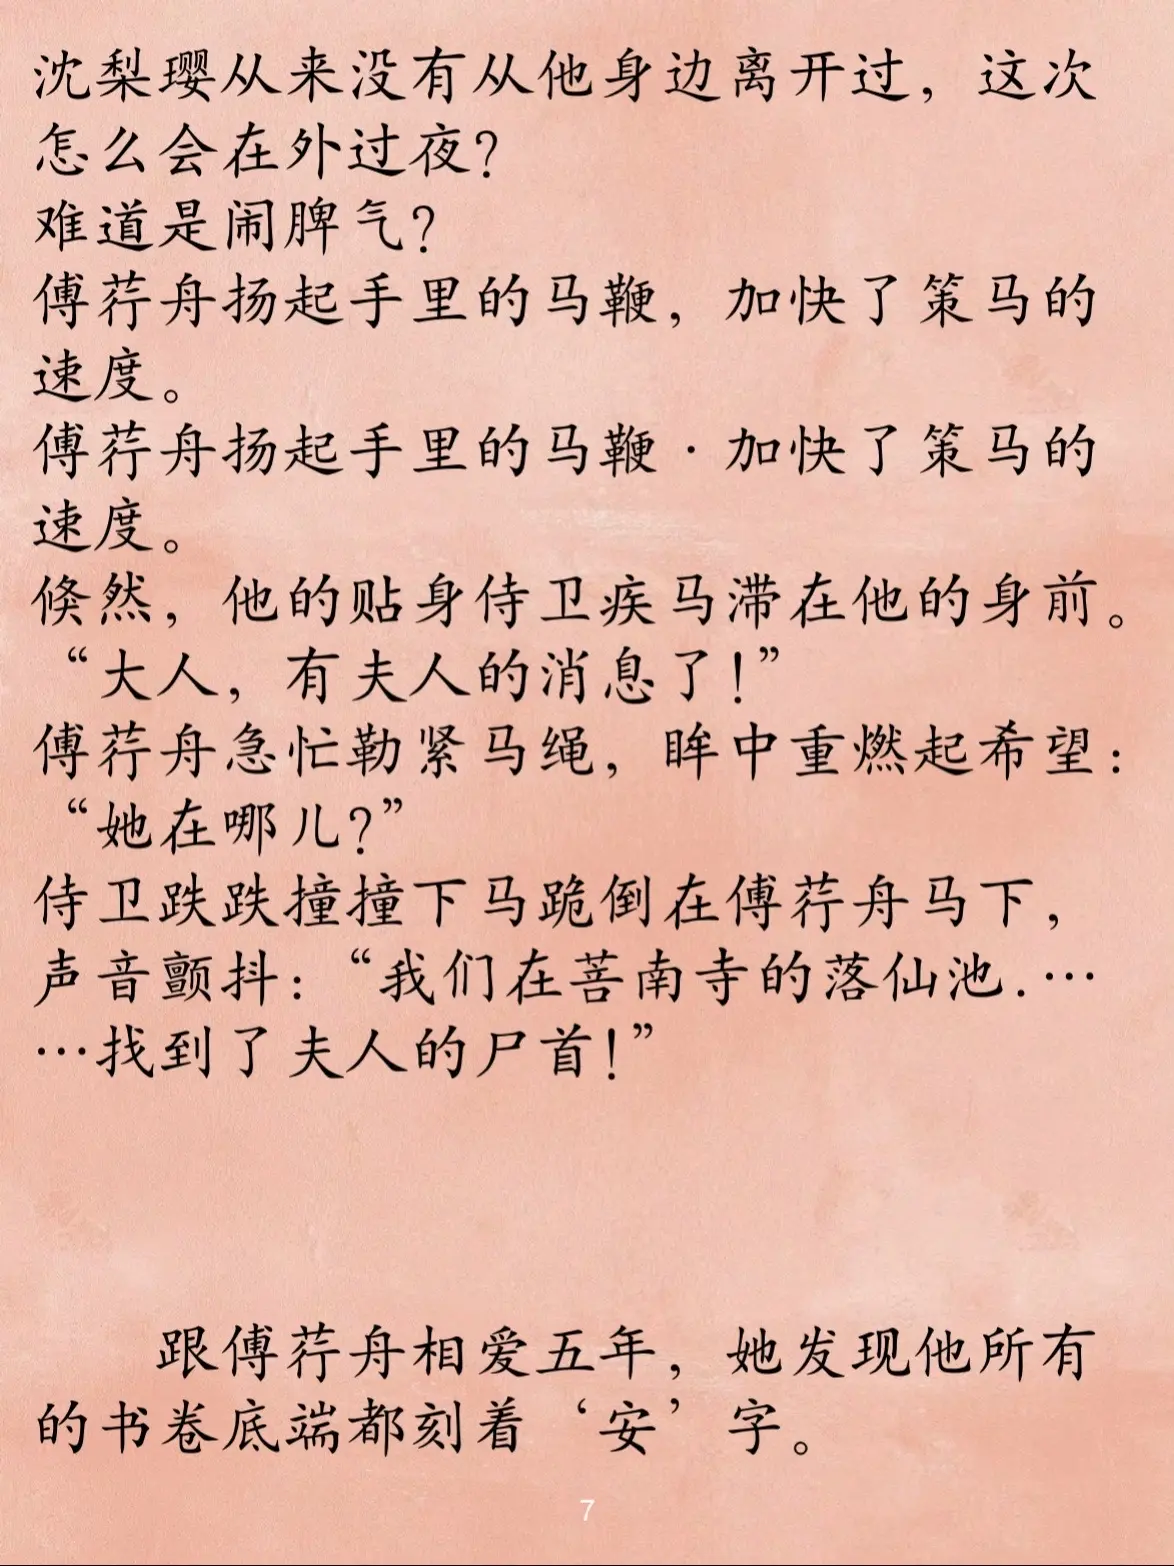 沈梨璎从来没有从他身边离开过，这次
怎么会在外过夜？
难道是闹脾气？
傅荇舟扬起手里的马鞭，加快了策马的
速度。
傅荇舟扬起手里的马鞭·加快了策马的
速度。
倏然，他的贴身侍卫疾马滞在他的身前。
“大人，有夫人的消息了！”
傅荇舟急忙勒紧马绳，眸中重燃起希望：
“她在哪儿？”
侍卫跌跌撞撞下马跪倒在傅荇舟马下，
声音颤抖：“我们在菩南寺的落仙池.…
…找到了夫人的尸首！”
跟傅荇舟相爱五年，她发现他所有
的书卷底端都刻着‘安’字。
7